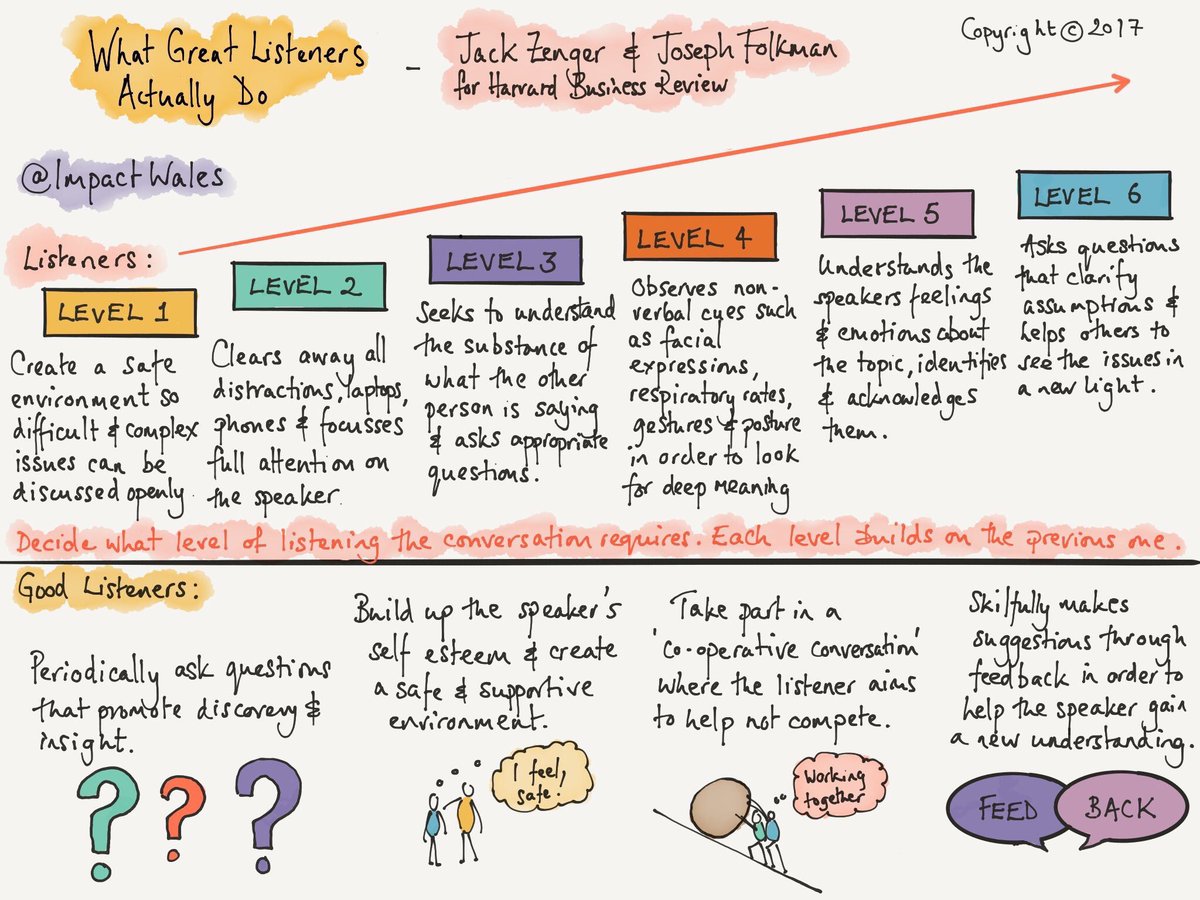 What Great Listeners
Actually Do
- Jack Zenger & Joseph Folkman
for Harvard Business Review
Copyright © 2017
@ImpactWales
Listeners:
LEVEL 1
Create a safe
environment so
difficult & complex
issues can be
discussed openly.
LEVEL 2
Clears away all
distractions, laptops,
phones & focusses
full attention on
the speaker.
LEVEL 3
Seeks to understand
the substance of
what the other
person is saying
& asks appropriate
questions.
LEVEL 4
Observes non-
verbal cues such
as facial
expressions,
respiratory rates,
gestures & posture
in order to look
for deep meaning
LEVEL 5
Understands the
speakers feelings
& emotions about
the topic, identifies
& acknowledges
them.
LEVEL 6
Asks questions
that clarify
assumptions &
helps others to
see the issues in
a new light.
Decide what level of listening the conversation requires. Each level builds on the previous one.
Good Listeners:
Periodically ask questions
that promote discovery &
insight.
Build up the speaker's
self esteem & create
a safe & supportive
environment.
I feel,
safe.
Take part in a
'co-operative conversation'
where the listener aims
to help not compete.
Working
together
Skilfully makes
suggestions through
feedback in order to
help the speaker gain
a new understanding.
FEED BACK